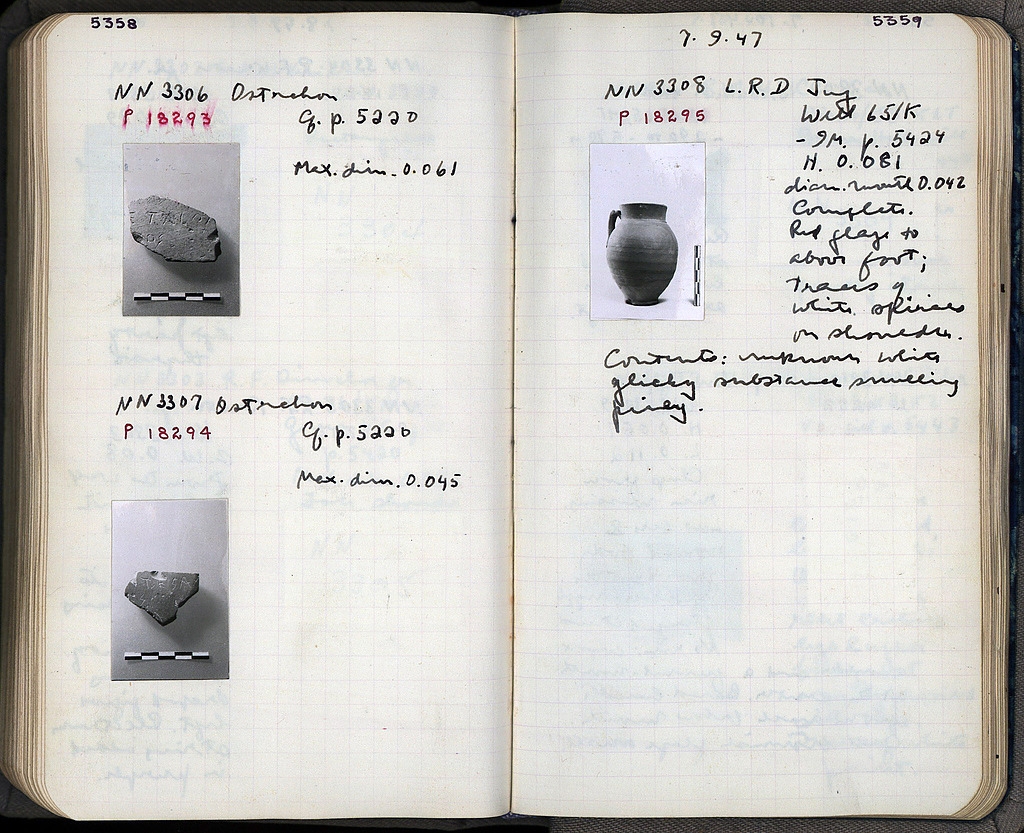 5358
NN 3306 Ostrakon
P 18293
Cf. p. 5220
Max. dim. 0.061
NN 3307 Ostrakon
P 18294
Cf. p. 5220
Max. dim. 0.045
5359
7. 9. 47
NN 3308 L. R. D Jug
P 18295
Well 65/K
- 9M. p. 5424
H. 0.081
diam. mouth 0.042
Complete.
Red glaze to
above foot;
traces of
white spirals
on shoulder.
Contents: unknown white
substance smelling